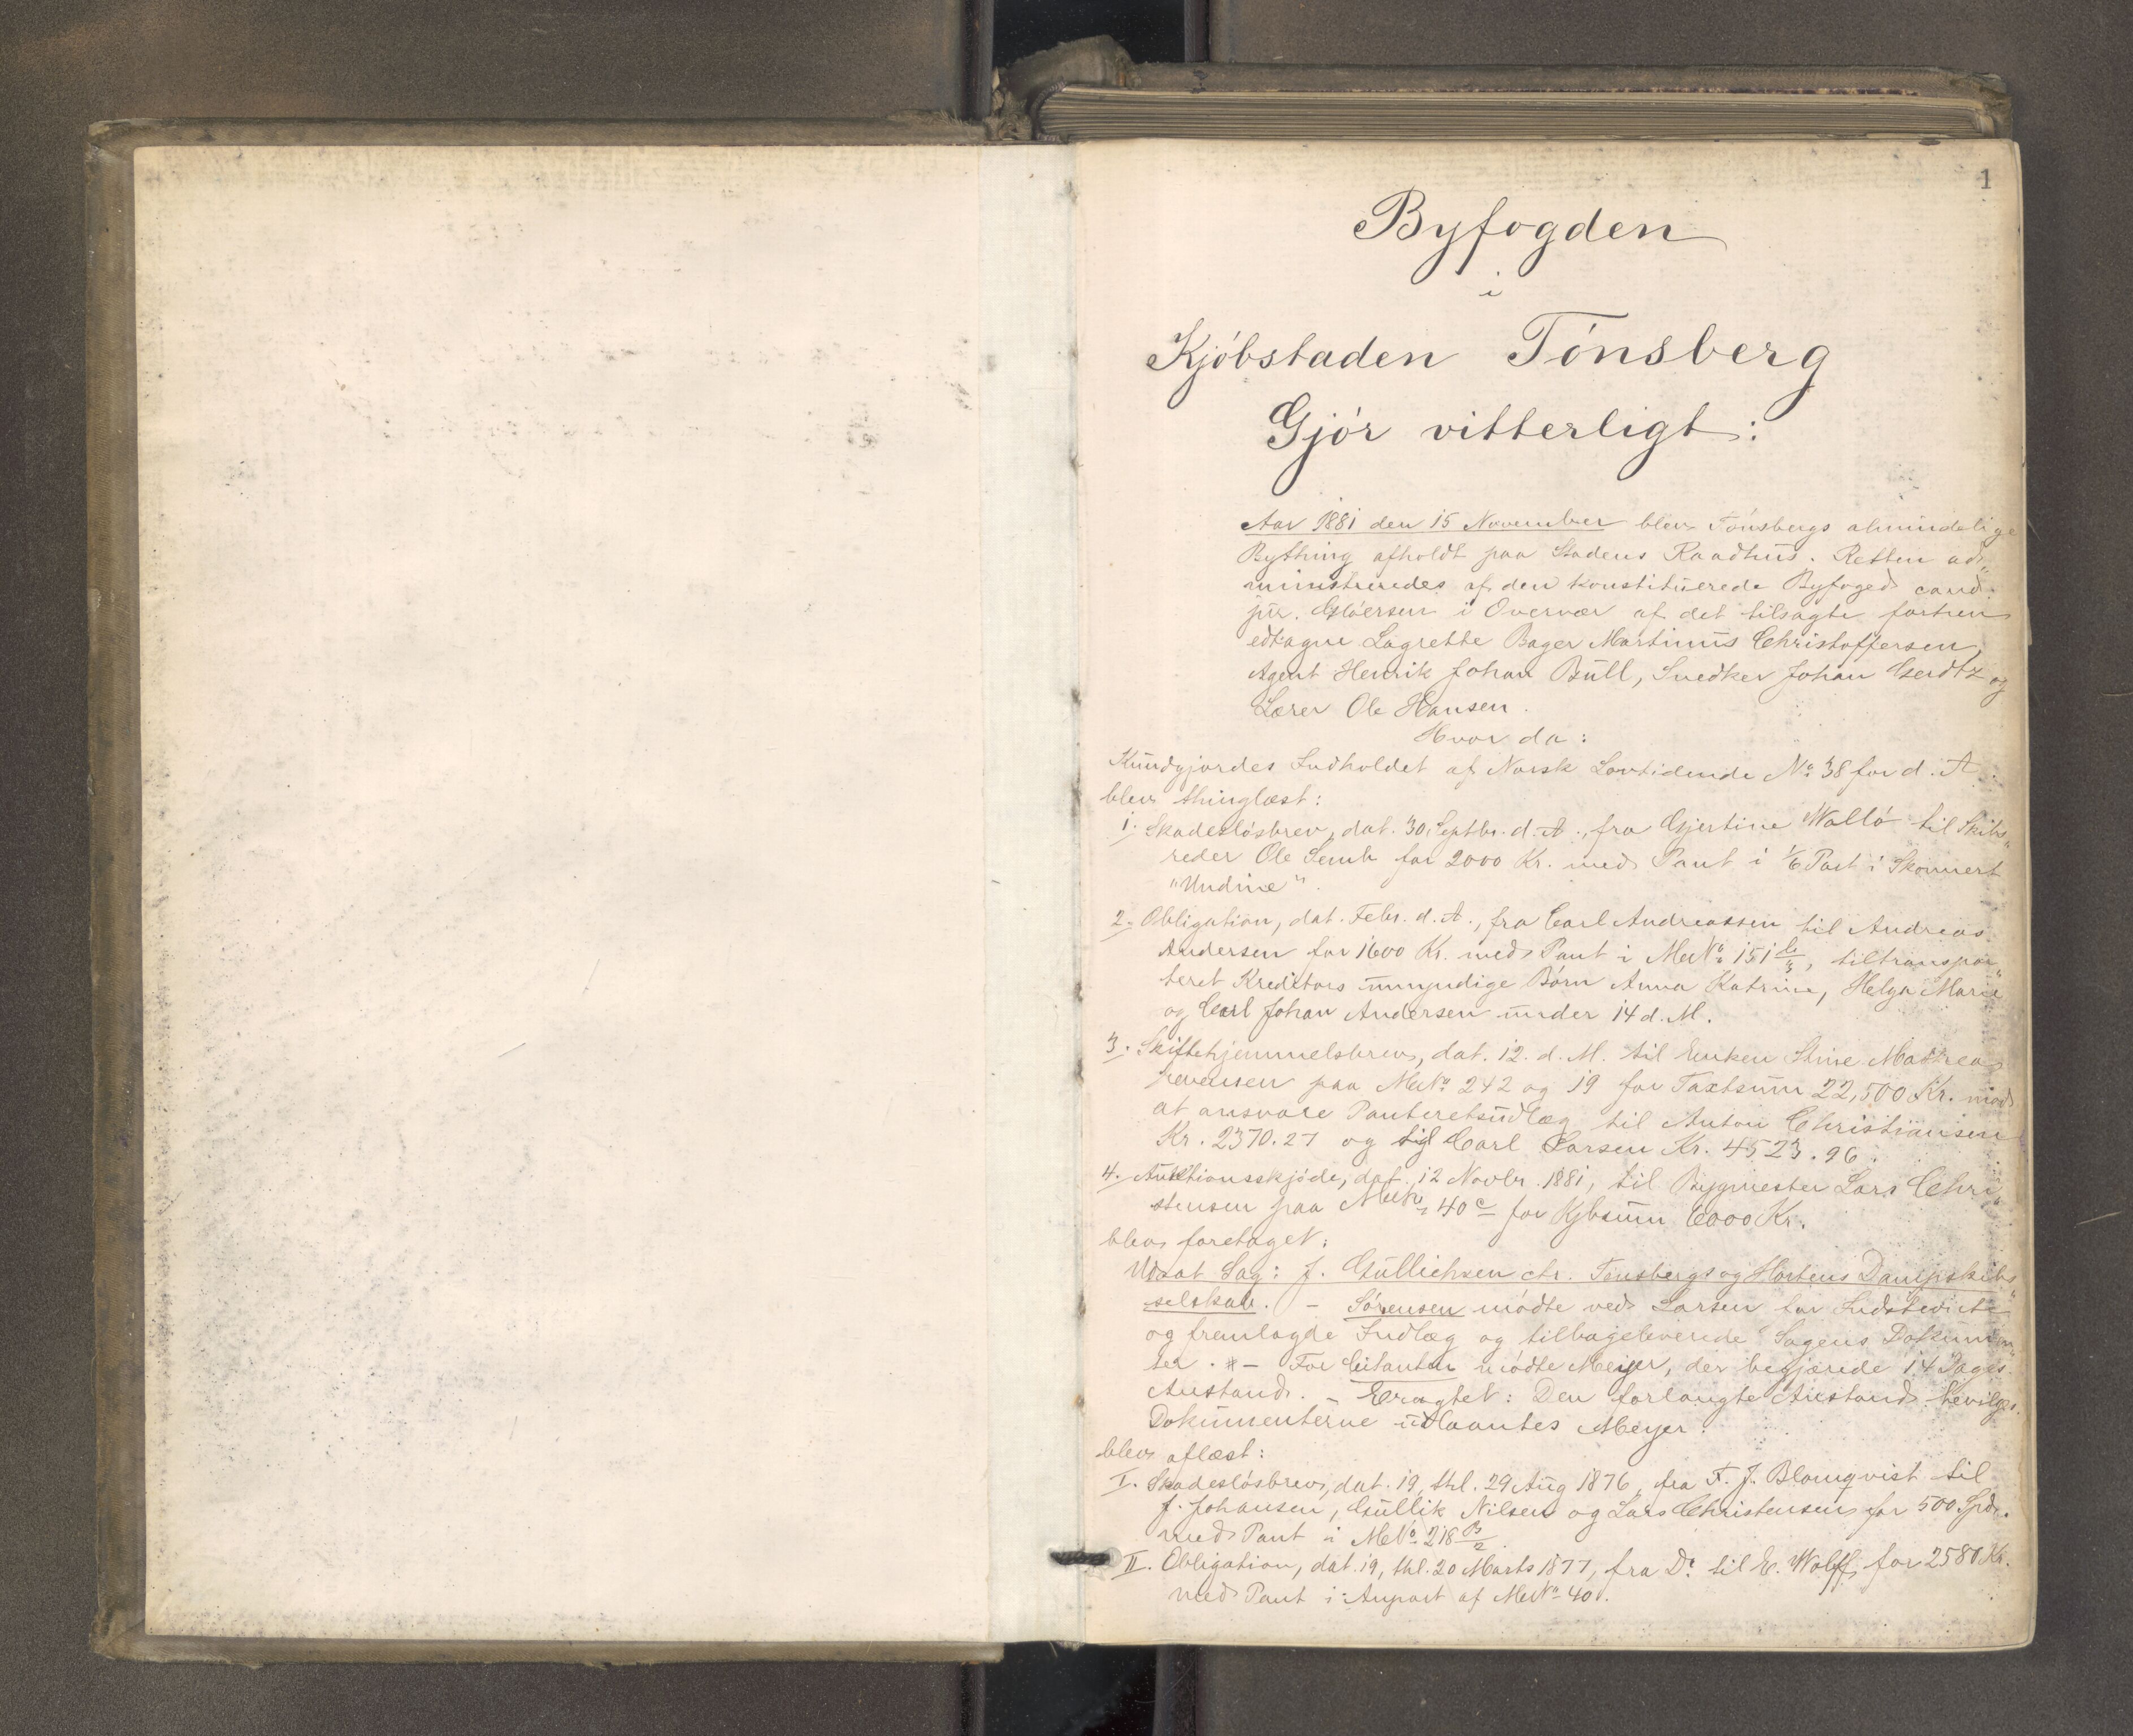 1
Byfogden
i
Kjöbstaden Tönsberg
Gjör vitterligt:
Aar 1881 den 15 November blev Tönsbergs almindelige
Bything afholdt paa Stadens Raadhus. Retten ad„
ministreredes af den konstituerede Byfoged cand.
jur. Gløersen i Overvær af det tilsagte fortrin
edtagne Lagrette Bager Martinus Christoffersen,
Agent Henrik Johan Bull, Snedker Johan Gerdtz og
Lærer Ole Hansen.
Hvor da:
Kundgjordes Indholdet af Norsk Lovtidende No. 38 for d. A.
blev thinglæst:
1. Skadeslösbrev, dat. 30. Septbr. d. A., fra Gjertine Wallö til Skibs„
reder Ole Semb for 2000 Kr. med Pant i 1/6 Part i Skonnert
"Undine".
2. Obligation, dat. Febr. d. A., fra Carl Andreassen til Andreas
Andersen for 1600 Kr. med Pant i MatNo. 151 b/3, tiltranspor„
teret Kreditors umyndige Börn Anna Katrine, Helga Marie
og Carl Johan Andersen under 14 d. M.
3. Skiftehjemmelsbrev, dat. 12. d. M. til Enken Stine Mathea
paa MatNo. 242 og 19 for Taxtsum 22,500 Kr. mod
at ansvare Panteretsudlæg til Anton Christiansen
Kr. 2370.27 og til Carl Larsen Kr. 4523.96.
4. Auktionsskjöde, dat. 12 Novbr. 1881, til Bygmester Lars Chri„
stensen paa MatNo. 40 c for Kjbsum 6000 Kr.
blev foretaget:
Udsat Sag: J. Gullichsen ctr. Tønsbergs og Hortens Dampskibs„
selskab. – Sörensen mödte ved Larsen for Indstevnte
og fremlagde Indlæg og tilbageleverede Sagens Dokumen„
ter. – For Citanten mödte Meyer, der begjærede 14 Dages
Anstand. – Eragtet: Den forlangte Anstand bevilges.
Dokumenterne udlaantes Meyer.
blev aflæst:
I. Skadeslösbrev, dat. 19, thl. 29 Aug 1876, fra F. J. Blomqvist til
J. Johansen, Gullik Nilsen og Lars Christensen for 500 Spd.
med Pant i MtNo. 218 B/2.
II. Obligation, dat. 19, thl. 20 Marts 1877, fra Do. til E. Wolff for 2580 Kr.
med Pant i Anpart af MatNo. 40.